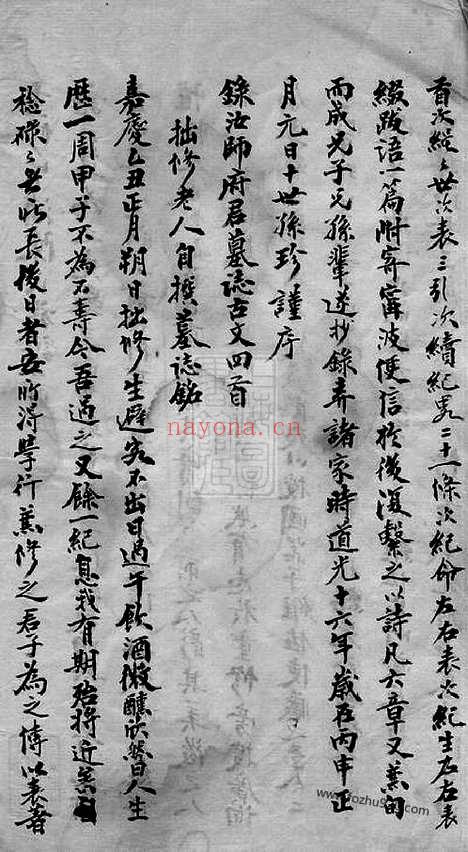 首次繼之世次表三引次續紀畧二十一條次紀命左右表次紀生左右表
綴跋語一篇附寄甯波便信於後復繫之以詩凡六章又兼旬
而成兄子兄孫輩遂抄錄弆諸家時道光十六年歲在丙申正
月元日十世孫珍謹序
錄汝師府君墓誌古文四首
拙修老人自撰墓誌銘
嘉慶乙丑正月朔日拙修生避客不出日過午飲酒微醺欣然曰人生
歷一周甲子不為不壽今吾過之又餘一紀息我有期殆將近矣
碌碌無所長後日者安所得學行兼修之君子為之傳以表著
nayona.cn
www.fozhu9.com